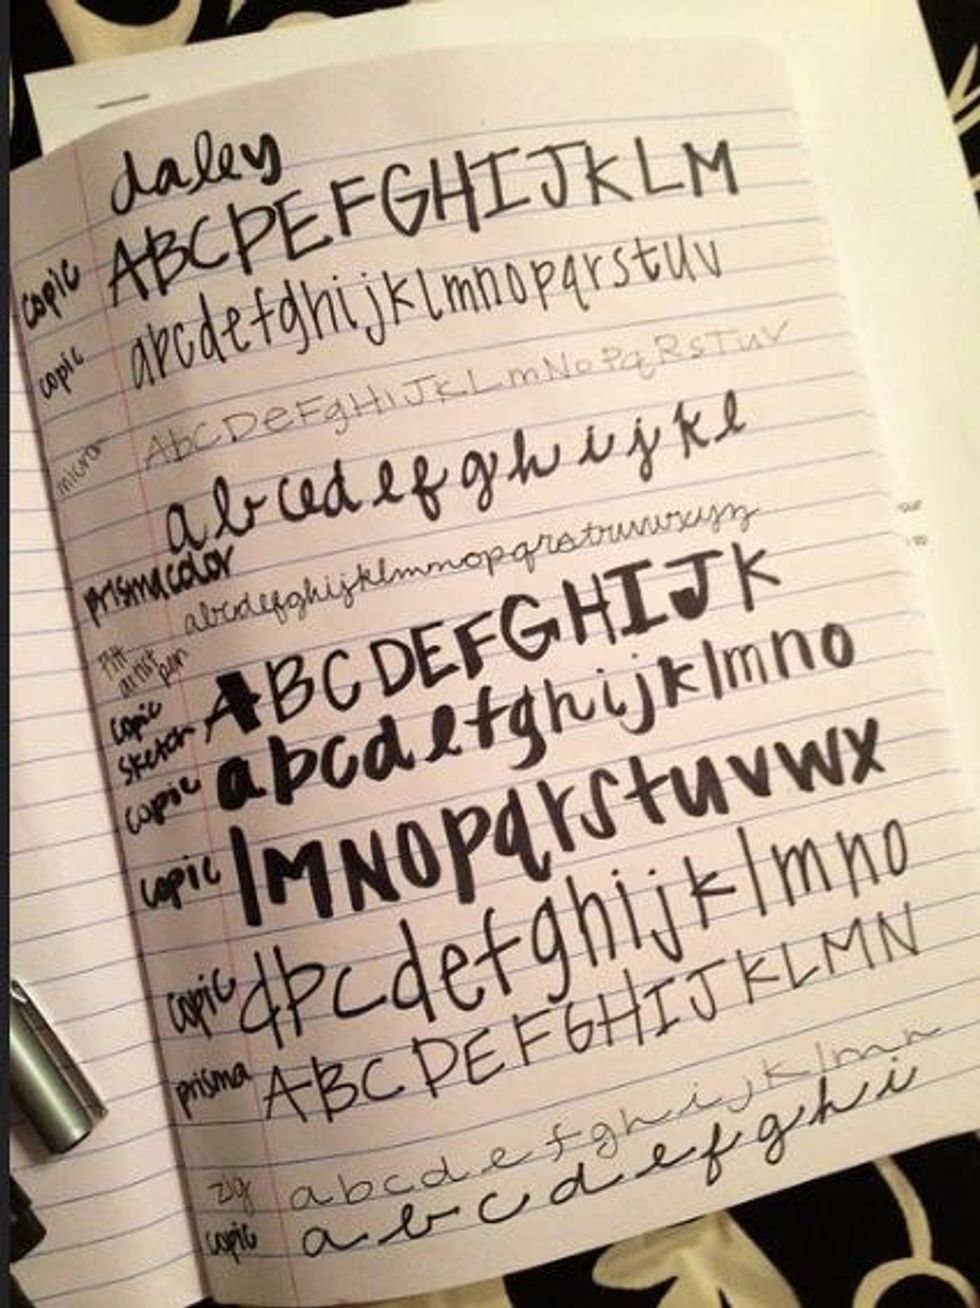 daley
copic ABCDEFGHIJKLM
copic abcdefghijklmnopqrstuv
micron AbCDeFgHiJKLmNoPqRsTuV
prismacolor abcdefghijkl
Pitt artist pen abcdefghijklmnopqrstuvwxyz
copic sketch ABCDEFGHIJK
copic abcdefghijklmno
copic lMNOpqrstuvwx
copic abcdefghijklmno
prisma ABCDEFGHIJKLMN
zig abcdefghijklmn
copic abcdefghi